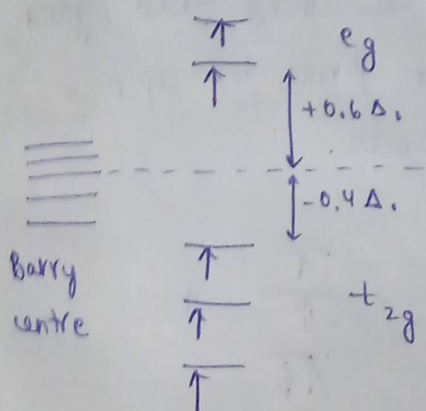 eg
+0.6 Δ.
-0.4 Δ.
Barry
centre
t2g